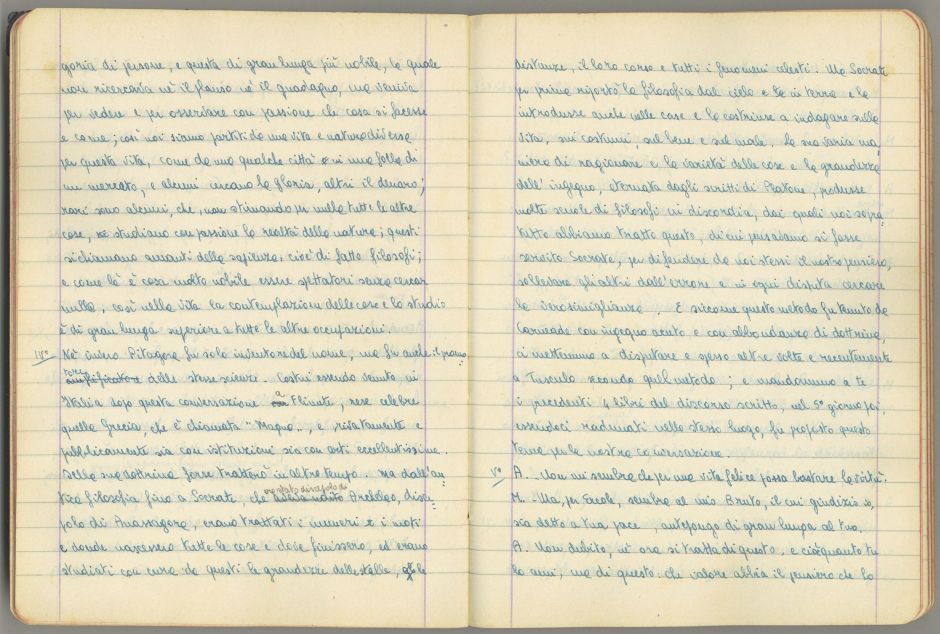 goria di persone, e questa di gran lunga più nobile, la quale
non ricercasse nè il plauso nè il guadagno, ma veniva
per vedere e per osservare con passione che cosa si facesse
e come; così noi siamo partiti da una vita e natura diversa
per questa vita, come da una qualche città in una folla di
un mercato, e alcuni cercano la gloria, altri il denaro;
rari sono alcuni, che, non stimando per nulla tutte le altre
cose, studiano con passione la realtà della natura; questi
si chiamano amanti della sapienza, cioè di fatto filosofi;
e come là è cosa molto nobile essere spettatori senza cercar
nulla, così nella vita la contemplazion delle cose e lo studio
è di gran lunga superiore a tutte le altre occupazioni.
IV° Nè invero Pitagora fu solo inventore del nome, ma fu anche il promo
tore delle stesse scienze. Costui essendo venuto, in
Italia dopo questa conversazione a Fliunte, rese celebre
quella Grecia, che è chiamata "Magna", e privatamente e
pubblicamente sia con istituzioni sia con arti eccellentissime.
Della sua dottrina forse tratterò in altro tempo. Ma dall'an
tica filosofia fino a Socrate, che era stato discepolo di Archelao, disce
polo di Anassagora, erano trattati i numeri e i moti
e donde nascessero tutte le cose e dove finissero, ed erano
studiati con cura da questi le grandezze delle stelle, le
distanze, il loro corso e tutti i fenomeni celesti. Ma Socrate
per primo riportò la filosofia dal cielo e in terra e la
introdusse anche nelle case e la costrinse a indagare sulla
vita, sui costumi, sul bene e sul male. La sua varia ma
niera di ragionare e la varietà delle cose e la grandezza
dell'ingegno, eternata dagli scritti di Platone, produsse
molte scuole di filosofi in discordia, dai quali noi sopra
tutto abbiamo tratto questo, di cui pensiamo si fosse
servito Socrate, per difendere da noi stessi il nostro pensiero,
sollevare gli altri dall'errore e in ogni disputa cercare
la verosimiglianza. E siccome questo metodo fu tenuto da
Carneade con ingegno acuto e con abbondanza di dottrina,
ci mettemmo a disputare e spesso altre volte e recentemente
a Tusculo secondo quel metodo; e mandammo a te
i precedenti 4 libri del discorso scritto, nel 5° giorno poi,
essendoci radunati nello stesso luogo, fu proposto questo
tema per la nostra conversazione.
V° A. Non mi sembra che per una vita felice possa bastare la virtù.
M. Ma, per Ercole, sembra al mio Bruto, il cui giudizio io,
sia detto a tua pace, antepongo di gran lunga al tuo.
A. Non dubito, nè ora si tratta di questo, e cioè quanto tu
lo ami, ma di questo: che valore abbia il pensiero che lo